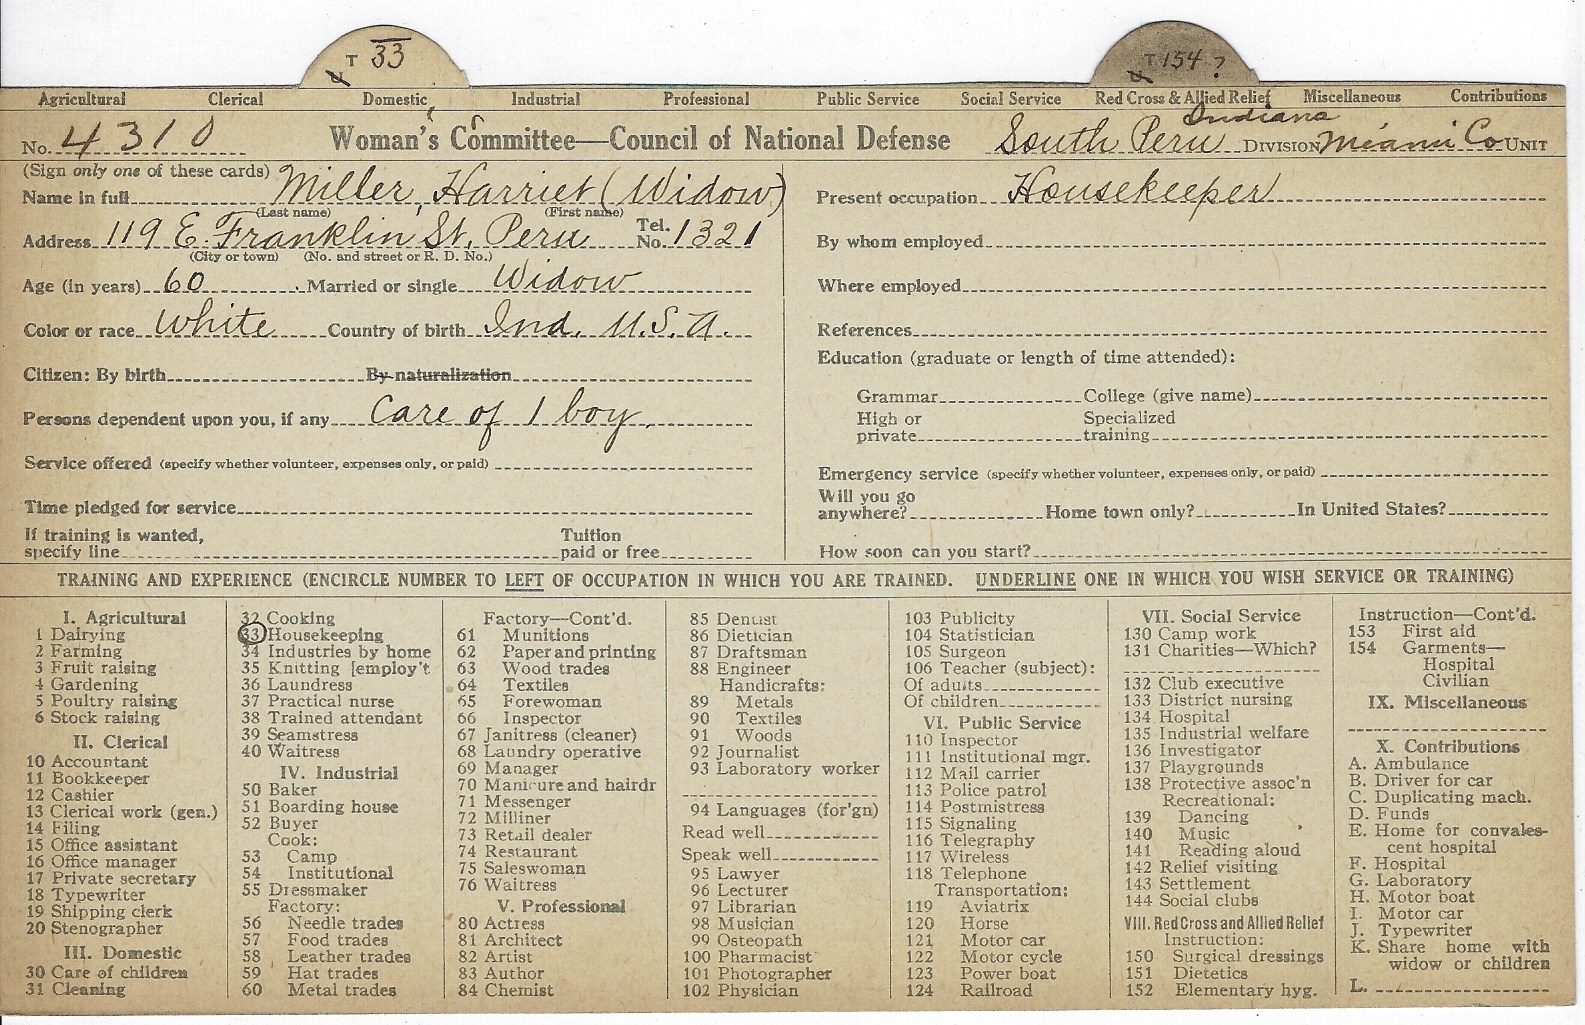 T 33
T 154 ?
Agricultural Clerical Domestic Industrial Professional Public Service Social Service Red Cross & Allied Relief Miscellaneous Contributions
No. 4310 Woman's Committee—Council of National Defense South Peru Indiana DIVISION Miami Co UNIT
(Sign only one of these cards)
Name in full Miller, Harriet (Widow)
(Last name) (First name)
Address 119 E. Franklin St, Peru Tel. No. 1321
(City or town) (No. and street or R. D. No.)
Age (in years) 60 Married or single Widow
Color or race White Country of birth Ind. U.S.A.
Citizen: By birth By naturalization
Persons dependent upon you, if any Care of 1 boy.
Service offered (specify whether volunteer, expenses only, or paid)
Time pledged for service
If training is wanted, specify line Tuition paid or free
Present occupation Housekeeper
By whom employed
Where employed
References
Education (graduate or length of time attended):
Grammar College (give name)
High or private Specialized training
Emergency service (specify whether volunteer, expenses only, or paid)
Will you go anywhere? Home town only? In United States?
How soon can you start?
TRAINING AND EXPERIENCE (ENCIRCLE NUMBER TO LEFT OF OCCUPATION IN WHICH YOU ARE TRAINED. UNDERLINE ONE IN WHICH YOU WISH SERVICE OR TRAINING)
I. Agricultural
1 Dairying
2 Farming
3 Fruit raising
4 Gardening
5 Poultry raising
6 Stock raising
II. Clerical
10 Accountant
11 Bookkeeper
12 Cashier
13 Clerical work (gen.)
14 Filing
15 Office assistant
16 Office manager
17 Private secretary
18 Typewriter
19 Shipping clerk
20 Stenographer
III. Domestic
30 Care of children
31 Cleaning
32 Cooking
33 Housekeeping
34 Industries by home
35 Knitting [employ't
36 Laundress
37 Practical nurse
38 Trained attendant
39 Seamstress
40 Waitress
IV. Industrial
50 Baker
51 Boarding house
52 Buyer
Cook:
53 Camp
54 Institutional
55 Dressmaker
Factory:
56 Needle trades
57 Food trades
58 Leather trades
59 Hat trades
60 Metal trades
Factory—Cont'd.
61 Munitions
62 Paper and printing
63 Wood trades
64 Textiles
65 Forewoman
66 Inspector
67 Janitress (cleaner)
68 Laundry operative
69 Manager
70 Manicure and hairdr
71 Messenger
72 Milliner
73 Retail dealer
74 Restaurant
75 Saleswoman
76 Waitress
V. Professional
80 Actress
81 Architect
82 Artist
83 Author
84 Chemist
85 Dentist
86 Dietician
87 Draftsman
88 Engineer
Handicrafts:
89 Metals
90 Textiles
91 Woods
92 Journalist
93 Laboratory worker
94 Languages (for'gn)
Read well
Speak well
95 Lawyer
96 Lecturer
97 Librarian
98 Musician
99 Osteopath
100 Pharmacist
101 Photographer
102 Physician
103 Publicity
104 Statistician
105 Surgeon
106 Teacher (subject):
Of adults
Of children
VI. Public Service
110 Inspector
111 Institutional mgr.
112 Mail carrier
113 Police patrol
114 Postmistress
115 Signaling
116 Telegraphy
117 Wireless
118 Telephone
Transportation:
119 Aviatrix
120 Horse
121 Motor car
122 Motor cycle
123 Power boat
124 Railroad
VII. Social Service
130 Camp work
131 Charities—Which?
132 Club executive
133 District nursing
134 Hospital
135 Industrial welfare
136 Investigator
137 Playgrounds
138 Protective assoc'n
Recreational:
139 Dancing
140 Music
141 Reading aloud
142 Relief visiting
143 Settlement
144 Social clubs
VIII. Red Cross and Allied Relief
Instruction:
150 Surgical dressings
151 Dietetics
152 Elementary hyg.
Instruction—Cont'd.
153 First aid
154 Garments—
Hospital
Civilian
IX. Miscellaneous
X. Contributions
A. Ambulance
B. Driver for car
C. Duplicating mach.
D. Funds
E. Home for convales-
cent hospital
F. Hospital
G. Laboratory
H. Motor boat
I. Motor car
J. Typewriter
K. Share home with
widow or children
L.